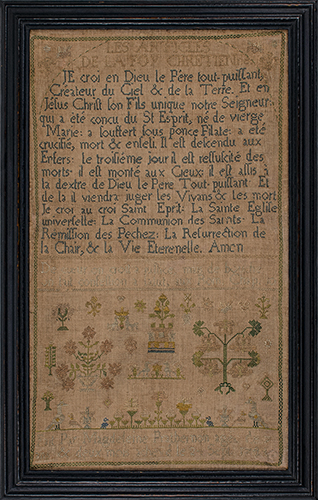 LES ARTICLES
DE LA FOY CHRETIENE
JE croi en Dieu le Père tout-puissant,
Createur du Ciel & de la Terre. Et en
Jésus Christ son Fils unique notre Seigneur:
qui a été concu du St Esprit, né de vierge
Marie: a souffert sous ponce Pilate: a été
crucifie, mort & enseli. Il est descendu aux
Enfers: le troisiéme jour il est ressuscité des
morts: il est monté aux Cieux: il est assis à
la dextre de Dieu le Pere Tout-puissant Et
de la il viendra juger les Vivans & les morts
Je croi au croi Saint Eprit: La Sainte Eglise
universelle: La Communion des Saints: La
Remission des Pechez: La Resurrection de
la Chair, & la Vie Eterenelle. Amon